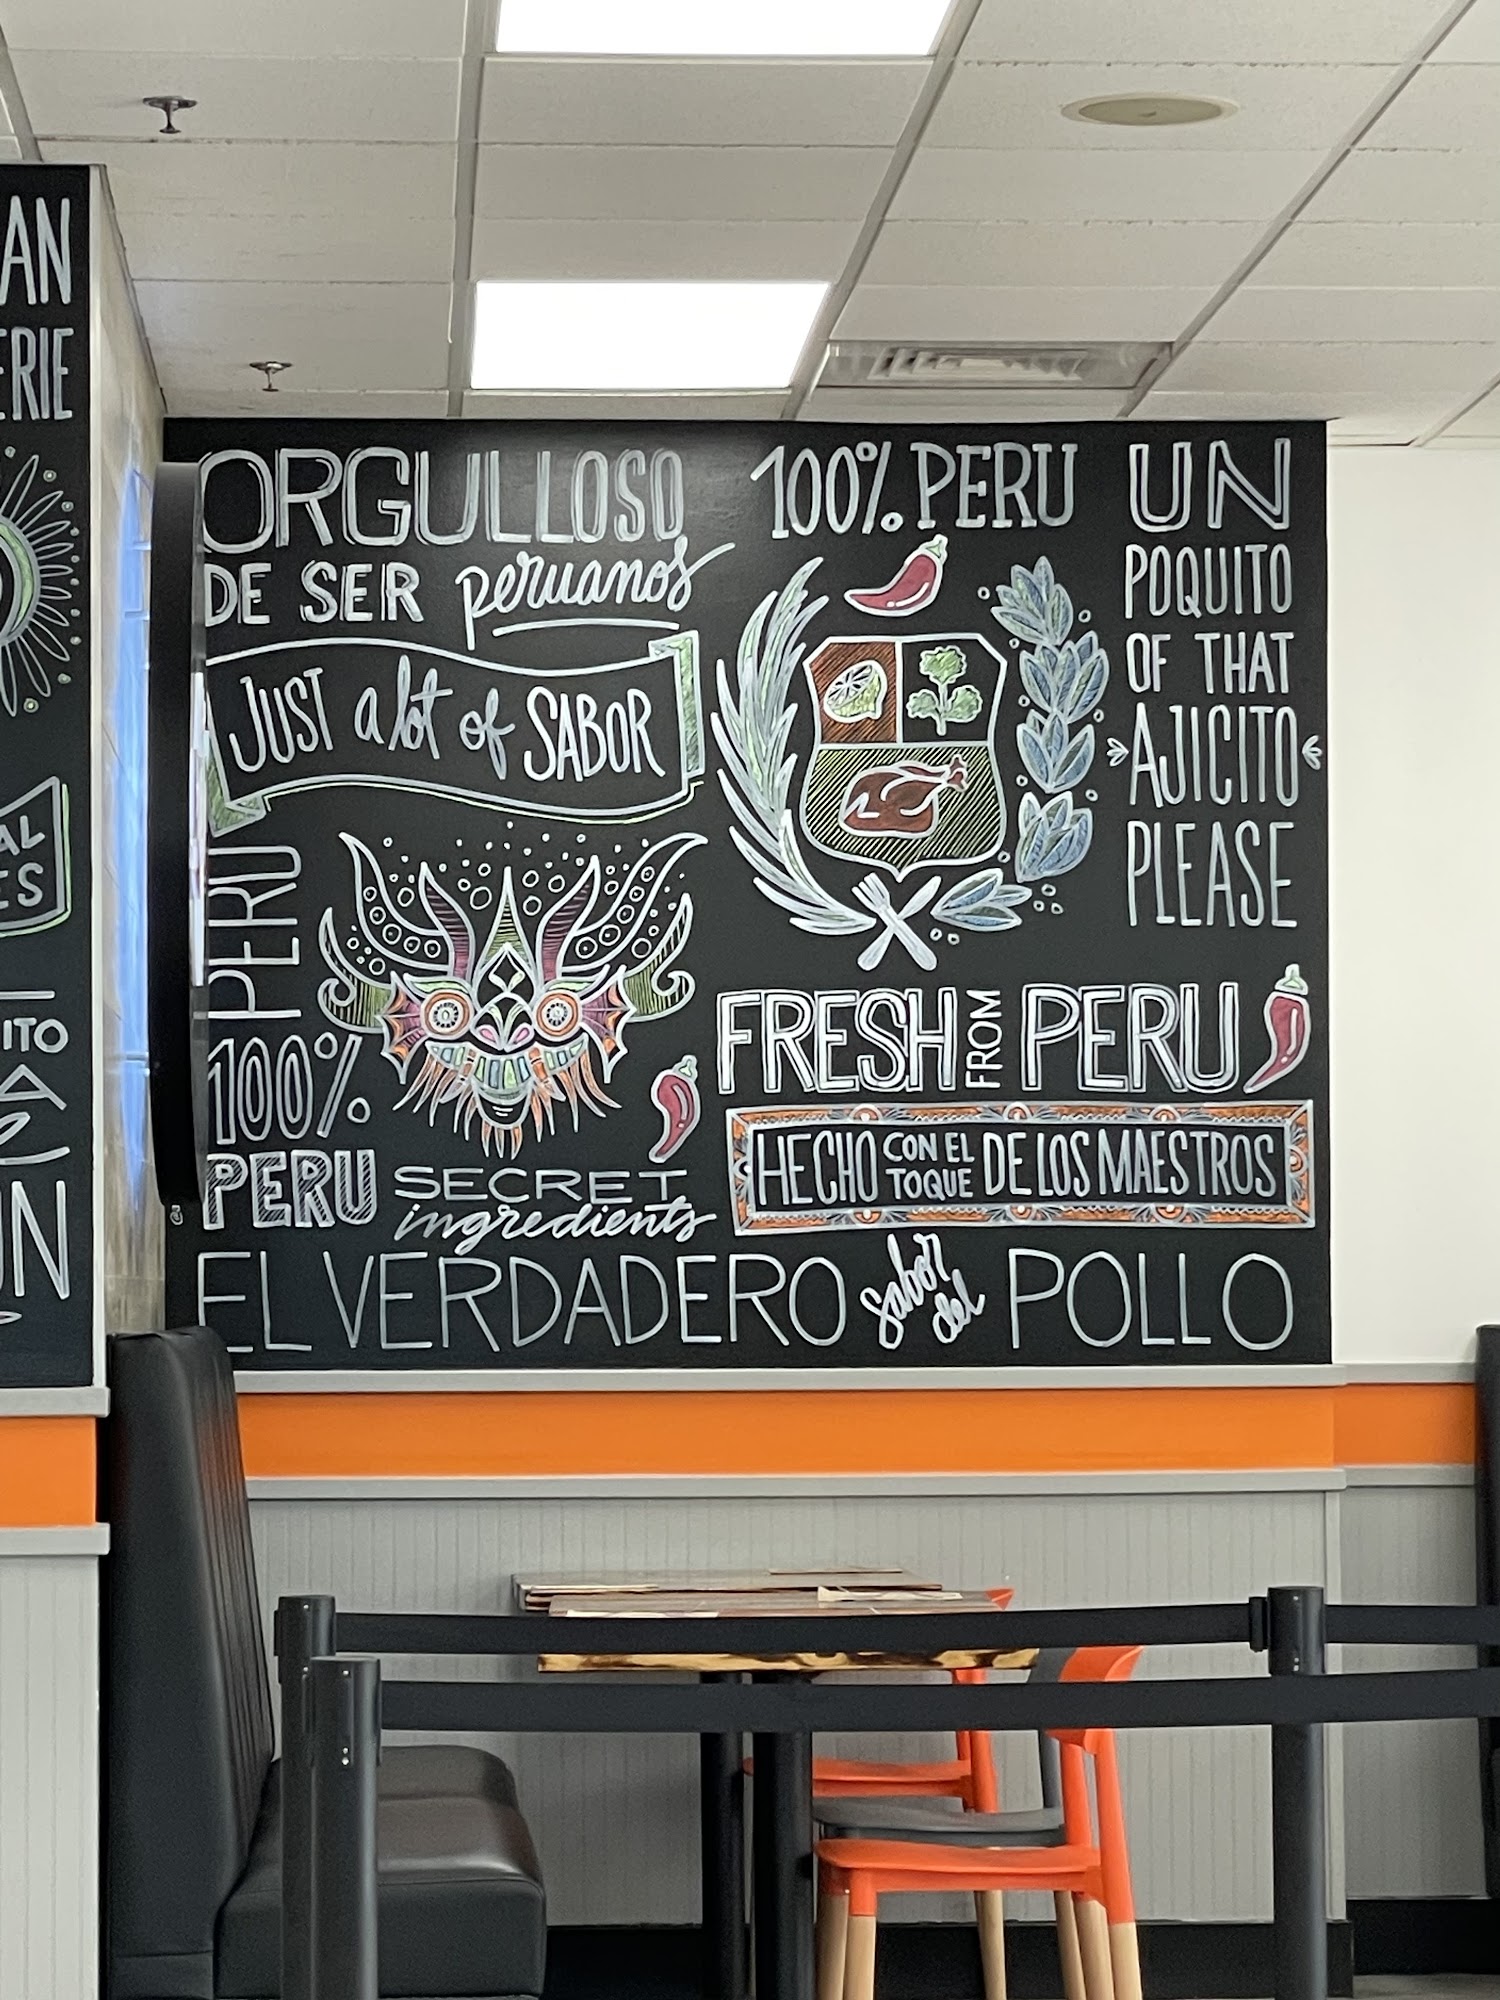 ORGULLOSO
DE SER peruanos
JUST a lot of SABOR
PERU
100%
PERU
SECRET
ingredients
100% PERU
UN
POQUITO
OF THAT
AJICITO
PLEASE
FRESH FROM PERU
HECHO CON EL TOQUE DE LOS MAESTROS
EL VERDADERO sabor del POLLO